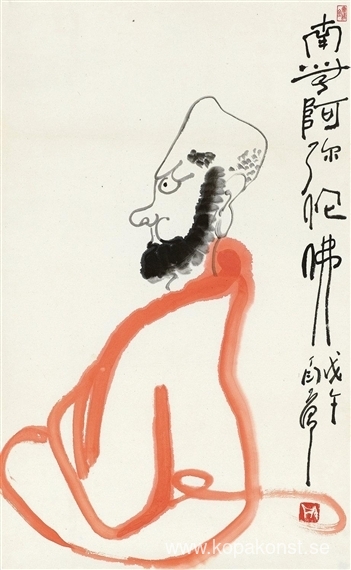 南無阿弥陀佛
戊午
www.kopakonst.se